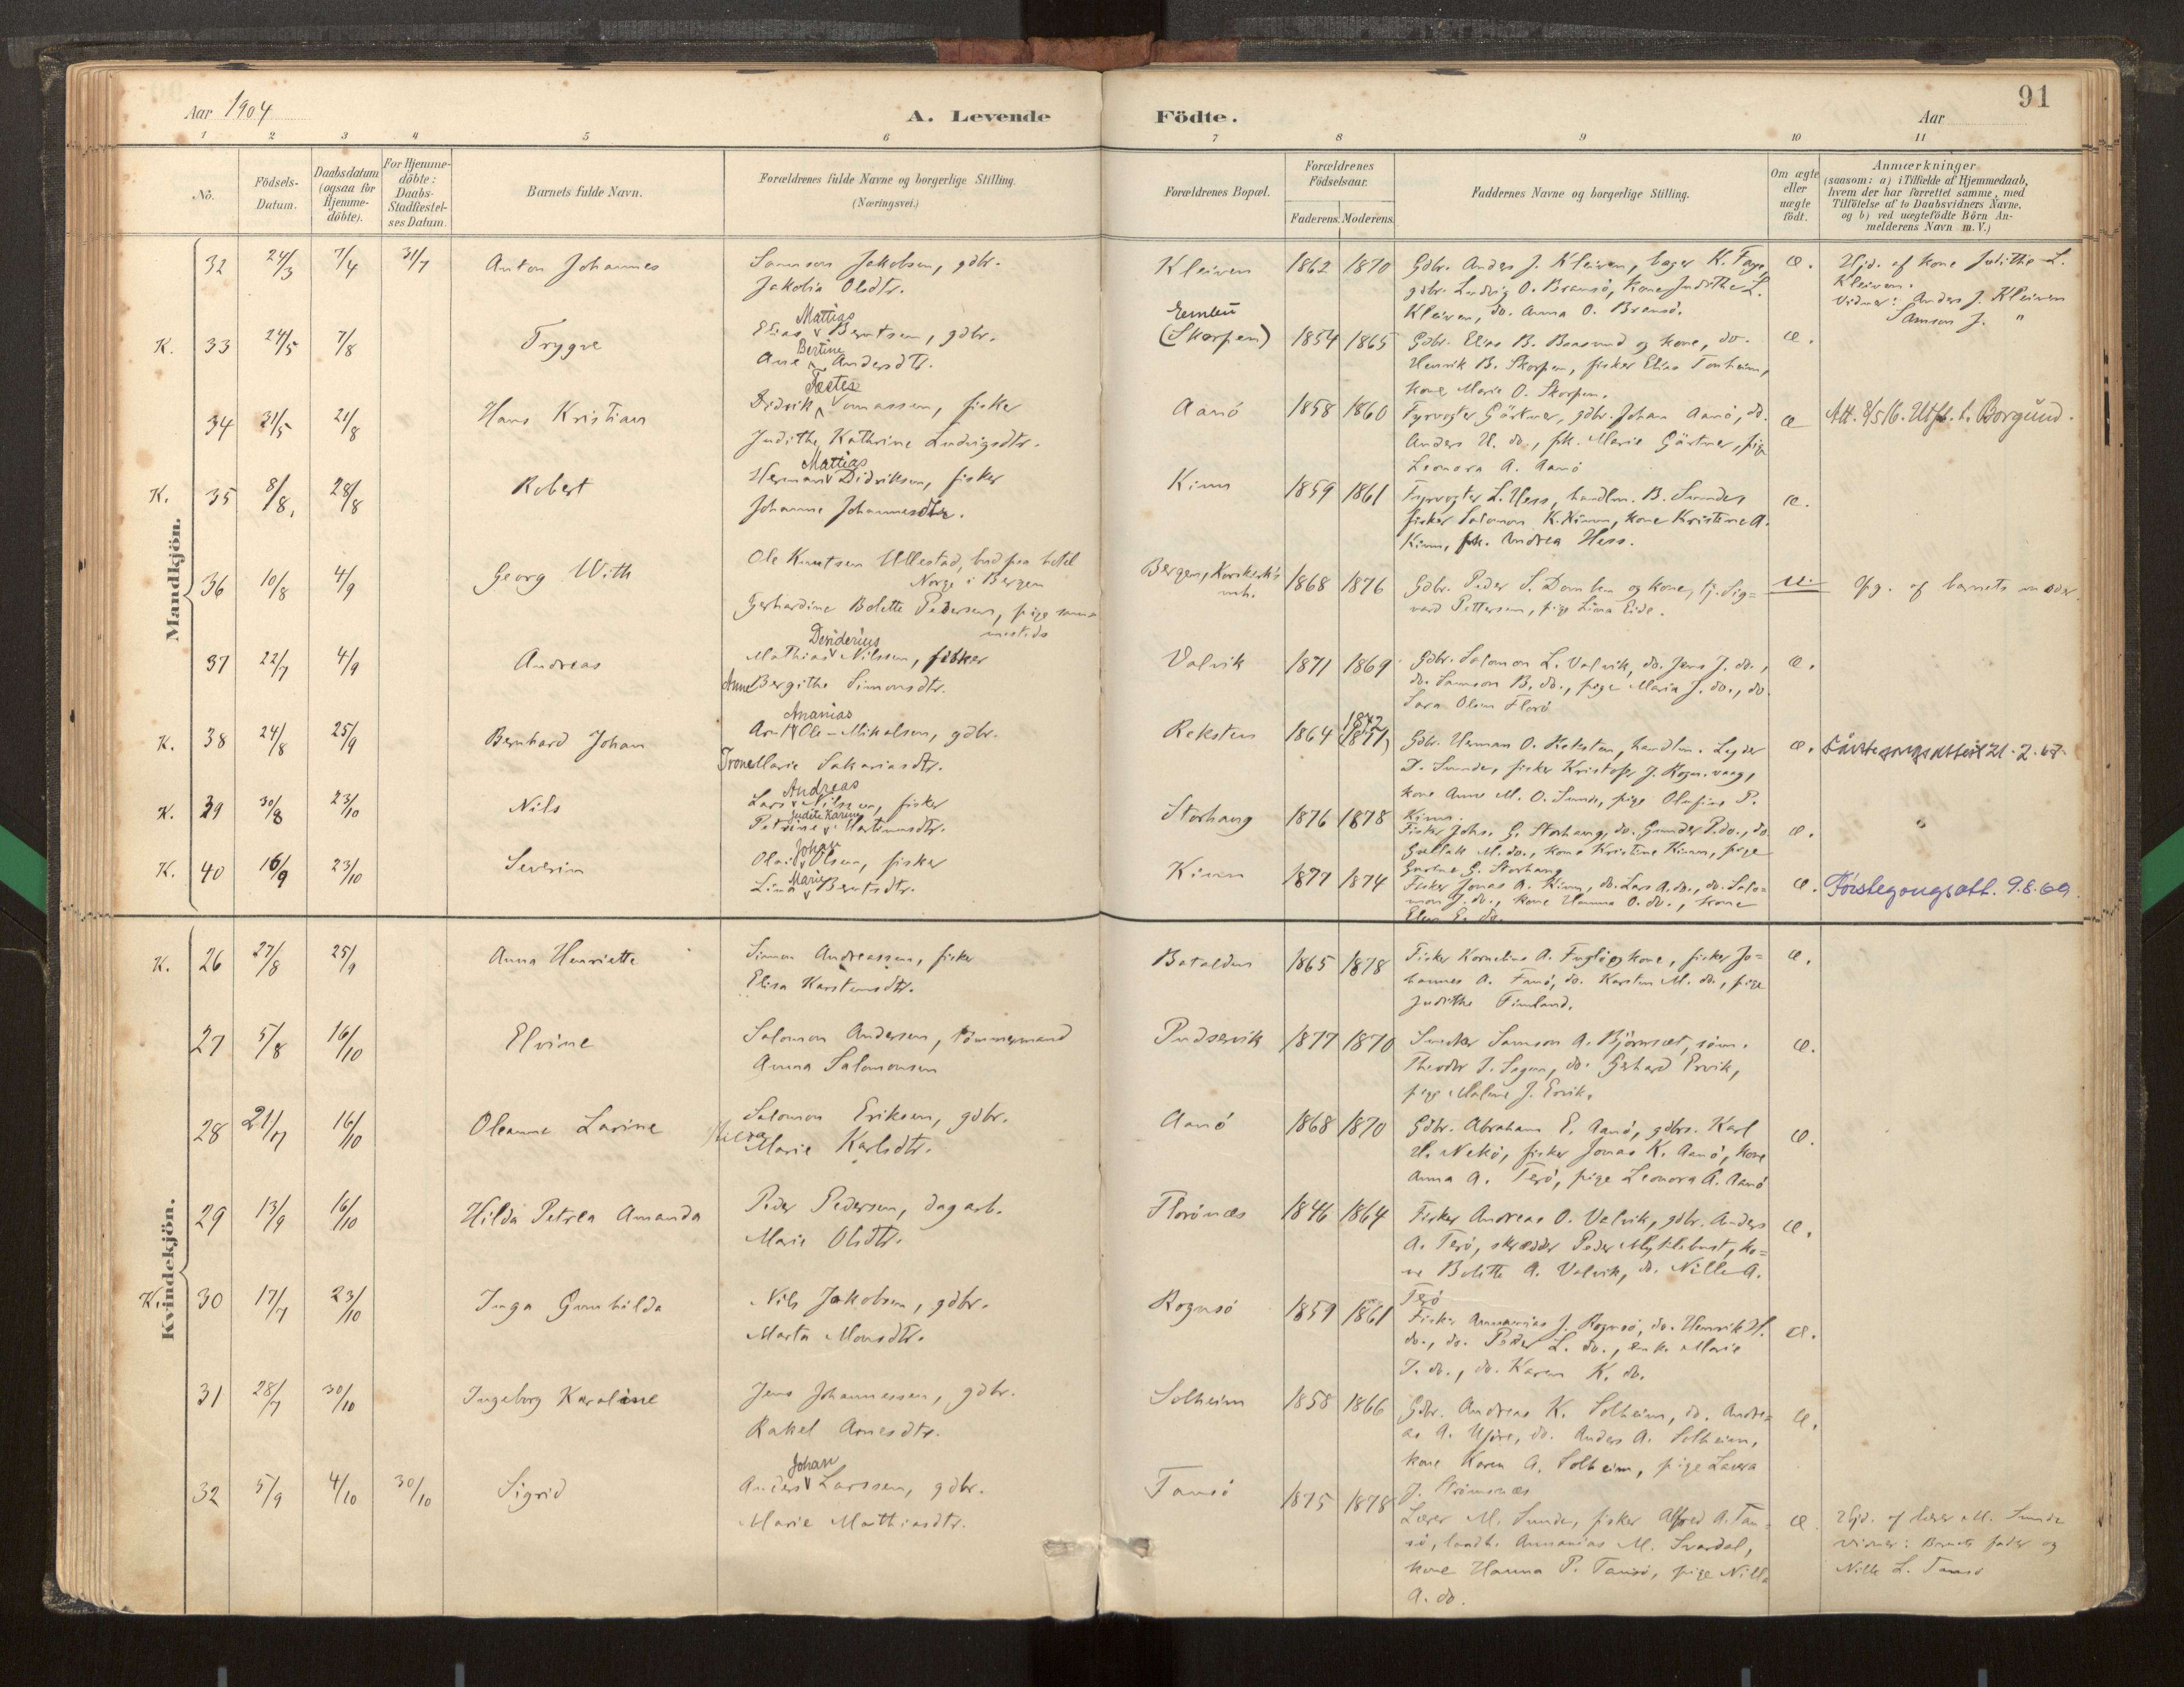 91
Aar 1904
A. Levende Födte.
Aar
1 2 3 4 5 6 7 8 9 10 11
No.
Födsels-Datum.
Daabsdatum (ogsaa for Hjemme-döbte).
For Hjemme-döbte: Daabs-Stadfæstel-ses Datum.
Barnets fulde Navn.
Forældrenes fulde Navne og borgerlige Stilling.
(Næringsvei.)
Forældrenes Bopæl.
Forældrenes Födselsaar.
Faderens. Moderens.
Faddernes Navne og borgerlige Stilling.
Om ægte eller uægte födt.
Anmærkninger
(saasom: a) i Tilfælde af Hjemmedaab,
hvem der har forrettet samme, med
Tilföielse af to Daabsvidners Navne,
og b) ved uægtefödte Börn An-
melderens Navn m. V.)
Mandkjön.
32 24/3 7/4 31/7 Anton Johannes
Samson Jakobsen, gdbr.
Jakobia Olsdtr.
Kleiven 1862 1870
Gdbr. Anders J. Kleiven, bager K. Farge,
gdbr. Ludvig O. Bransö, kone Judithe L.
Kleiven, do. Anna O. Bransö.
æ.
Hjd. af kone Judithe L.
Kleiven.
Vidner: Anders J. Kleiven
Samson J. "
K. 33 24/5 7/8 Trygve
Mattias
Elias Berntsen, gdbr.
Bertine
Ane Andersdtr.
(Skorpen) 1854 1865
Gdbr. Elias B. Brasund og kone, do.
Henrik B. Skorpen, fisker Elias Tonheim,
kone Marie O. Skorpen.
æ.
34 31/5 21/8 Hans Kristian
Didrik Tomassen, fisker
Judithe Kathrine Ludvigsdtr.
Aanö 1858 1860
Fyrvogter Gärtner, gdbr. Johan Aanö, do.
Anders H. do, frk. Marie Gärtner, pige
Leonora A. Aanö
æ
Att. 8/5 16. Utfl. t. Borgund.
K. 35 8/8 28/8 Robert
Mattias
Herman Didriksen, fisker
Johanne Johannesdtr.
Kinn 1859 1861
Fyrvogter L. Hess, handlm. B. Sunder
fisker Salomon K. Kinn, kone Kristine A.
Kinn, frk. Andrea Hess.
æ.
36 10/8 4/9 Georg With
Ole Knutsen Ullestad, bud paa hotel
Norge i Bergen
Gerhardine Bolette Pedersen, pige samme-
steds
Bergen, Korskirk's
mh. 1868 1876
Gdbr. Peder S. Domben og kone, tj. Sig=
vard Pettersen, pige Lina Eide.
u.
Opg. af barnets moder.
37 22/7 4/9 Andreas
Desiderius
Mathias Nilssen, fisker
Anne Bergithe Simonsdtr.
Valvik 1871 1869
Gdbr. Salomon L. Valvik, do. Jens J. do.,
do. Samson B. do., pige Maria J. do., do.
Sara Olsen Florö
æ.
K. 38 24/8 25/9 Bernhard Johan
Ananias
Arnt Ole Mikalsen, gdbr.
Trone Marie Sakariasdtr.
Reksten 1864 1872
Gdbr. Herman O. Reksten, handlm. Leyder
D. Sunde, fisker Kristofer J. Rognvaag,
kone Anne M. O. Sunde, pige Olufine P.
Kinn.
æ.
Förstegangsattest 21.2.67.
K. 39 30/8 23/10 Nils
Andreas
Lars Nilssen, fisker
Judite Karine
Petrine Martinusdtr.
Storhaug 1876 1878
Fisker Johs. G. Storhaug, do. Gunder P. do., do.
Gullak M. do., kone Kristine Kinn, pige
Gurine G. Storhaug
æ.
K. 40 16/9 23/10 Severin
Johan
Olai Olsen, fisker
Marie
Lina Berntsdtr.
Kinn 1877 1874
Fisker Jonas A. Kinn, do. Lars A. do., do. Salo=
mon J. do., kone Hanna O. do., kone
Elen E. do.
æ.
Förstegangsatt. 9.8.69.
Kvindekjön.
K. 26 27/8 25/9 Anna Henriette
Simon Andreassen, fisker
Elisa Karstensdtr.
Batalden 1865 1878
Fisker Kornelius A. Fuglö og kone, fisker Jo=
hannes A. Fanö, do. Karsten M. do., pige
Judithe Fimland.
æ.
27 5/8 16/10 Elvine
Salomon Andersen, tömmermand
Anna Salomonsen
Pudservik 1877 1870
Snedker Samson A. Björnset, sömm.
Theodor S. Sagen, do. Gerhard Ervik,
pige Malene J. Ervik.
æ.
28 21/7 16/10 Oleanne Larine
Salomon Eriksen, gdbr.
Marie Karlsdtr.
Aanö 1868 1870
Gdbr. Abraham E. Aanö, gdbrs. Karl
H. Nekö, fisker Jonas K. Aanö, kone
Anna A. Terö, pige Leonora A. Aanö
æ.
29 13/9 16/10 Hilda Petrea Amanda
Peder Pedersen, dagarb.
Marie Olsdtr.
Florönæs 1846 1864
Fisker Andreas O. Valvik, gdbr. Anders
A. Terö, skrædder Peder Myklebust, ko=
ne Bolette A. Valvik, do. Nille A.
Terö
æ.
K. 30 17/7 23/10 Inga Gunhilda
Nils Jakobsen, gdbr.
Marta Monsdtr.
Rognsö 1859 1861
Fisker Annanias J. Rognsö, do. Henrik H.
do., do. Peder L. do., enk. Marie
J. do., do. Karen K. do.
æ.
31 28/7 30/10 Ingeborg Karoline
Jens Johannessen, gdbr.
Rakel Arnesdtr.
Solheim 1858 1866
Gdbr. Andreas K. Solheim, do. Andre=
as A. Ufdre, do. Anders A. Solheim,
kone Karen A. Solheim, pige Lavra
J. Strömsnæs
æ.
32 5/9 4/10 30/10 Sigrid
Johan
Anders Larssen, gdbr.
Marie Mathiasdtr.
Tansö 1875 1878
Lærer M. Sunde, fisker Alfred A. Tan=
sö, landh. Annanias M. Svardal,
kone Hanna P. Tansö, pige Nille
A. do.
æ
Hjd. af lærer M. Sunde
Vidner: Barnets fader og
Nille L. Tansö